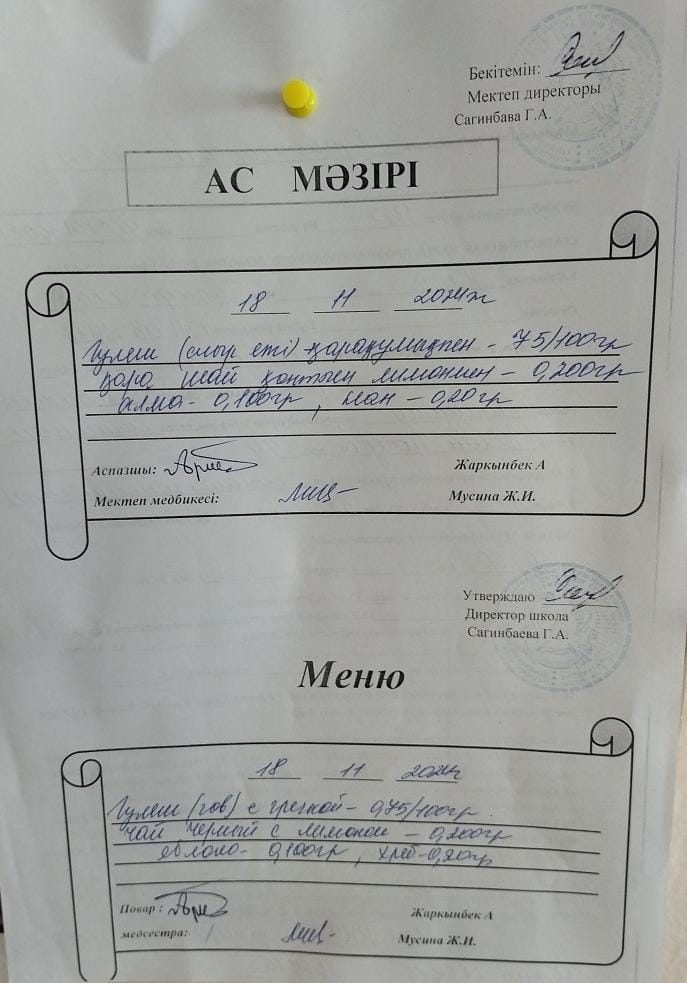 Бекітемін:
Мектеп директоры
Сагинбава Г.А.
АС МӘЗІРІ
18 11 2024ж
Гуляш (сиыр еті) қарақұмықпен - 75/100гр
қара шай қантпен лимонмен - 0,200гр
алма - 0,100гр, нан - 0,20гр
Аспазшы: Жаркынбек А
Мектеп медбикесі: Мусина Ж.И.
Утверждаю
Директор школа
Сагинбаева Г.А.
Меню
18 11 2024г
Гуляш (гов) с гречкой - 0,75/100гр.
чай черный с лимоном - 0,200гр
яблоко - 0,100гр, хлеб - 0,20гр
Повар: Жаркынбек А
медсестра: Мусина Ж.И.